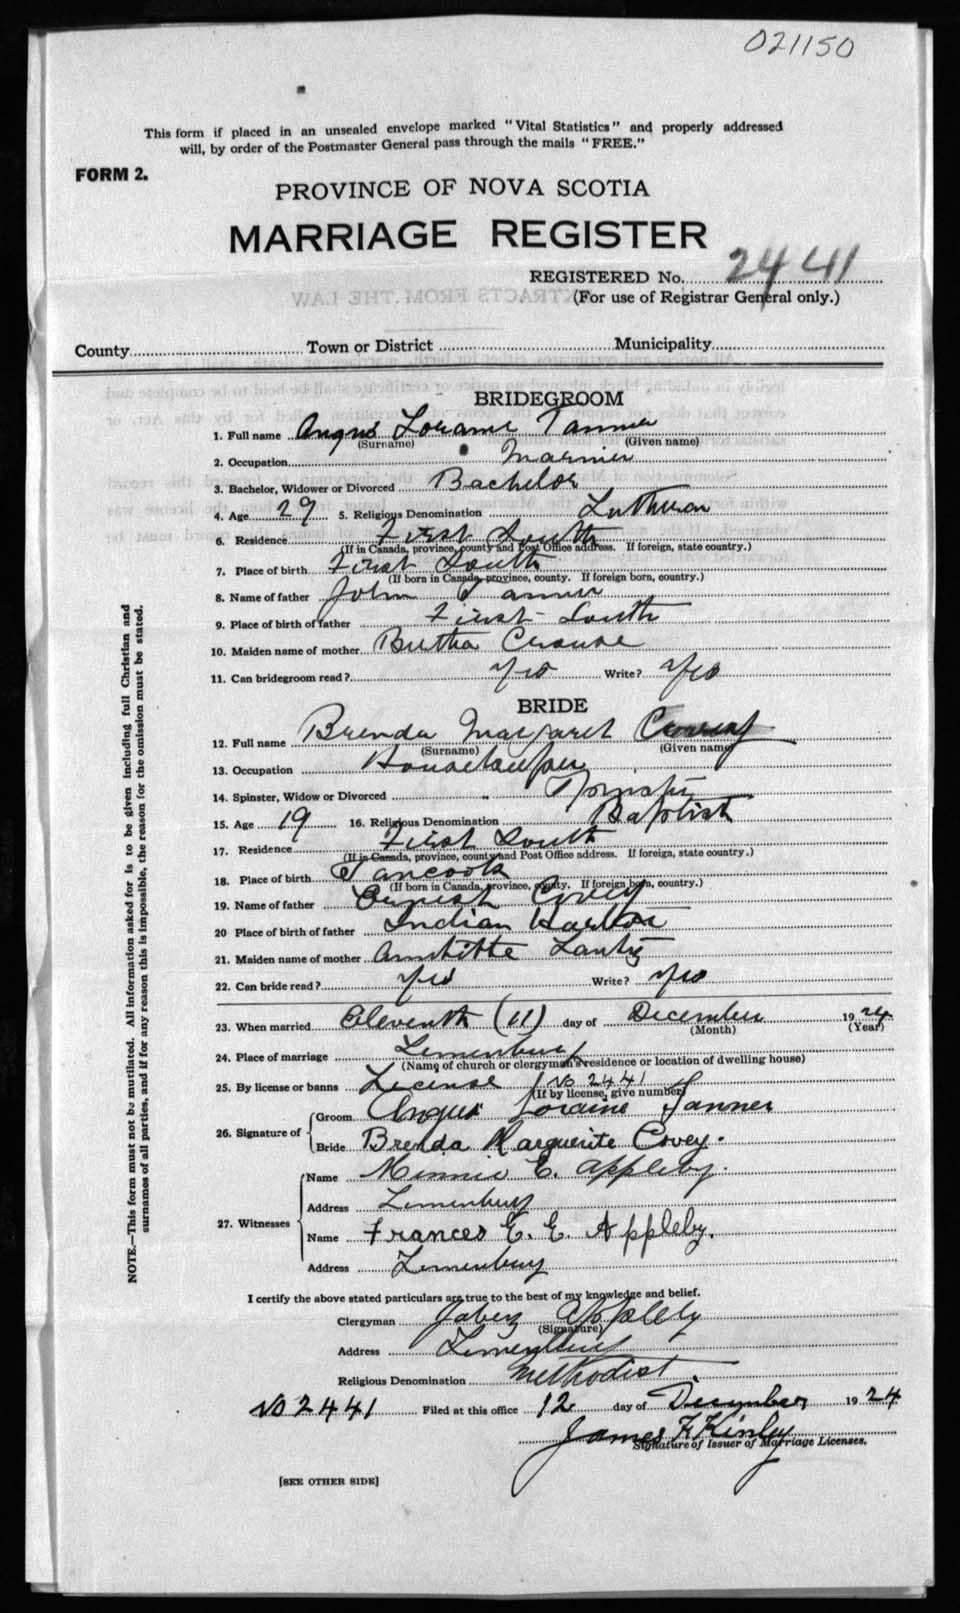 021150
This form if placed in an unsealed envelope marked "Vital Statistics" and properly addressed
will, by order of the Postmaster General pass through the mails "FREE."
FORM 2.
PROVINCE OF NOVA SCOTIA
MARRIAGE REGISTER
REGISTERED No. 2441
(For use of Registrar General only.)
County Town or District Municipality
BRIDEGROOM
1. Full name Angus Lorame Tanner
(Surname) (Given name)
2. Occupation Marnier
3. Bachelor, Widower or Divorced Bachelor
4. Age 29 5. Religious Denomination Lutheran
6. Residence First South
(If in Canada, province, county and Post Office address. If foreign, state country.)
7. Place of birth First South
(If born in Canada, province, county. If foreign born, country.)
8. Name of father John Tanner
9. Place of birth of father First South
10. Maiden name of mother Bertha Crouse
11. Can bridegroom read? Yes Write? Yes
BRIDE
12. Full name Brenda Margaret Covey
(Surname) (Given name)
13. Occupation Housekeeper
14. Spinster, Widow or Divorced Spinster
15. Age 19 16. Religious Denomination Baptist
17. Residence First South
(If in Canada, province, county and Post Office address. If foreign, state country.)
18. Place of birth Tancook
(If born in Canada, province, county. If foreign born, country.)
19. Name of father Ernest Covey
20 Place of birth of father Indian Harbor
21. Maiden name of mother Lantz
22. Can bride read? Yes Write? Yes
23. When married Eleventh (11) day of December 1924
(Month) (Year)
24. Place of marriage Lunenburg
(Name of church or clergyman's residence or location of dwelling house)
25. By license or banns License No 2441
(If by license, give number)
26. Signature of
Groom Angus Loraine Tanner
Bride Brenda Marguerite Covey.
27. Witnesses
Name Minnie E. Appleby.
Address Lunenburg
Name Frances E. E. Appleby.
Address Lunenburg
I certify the above stated particulars are true to the best of my knowledge and belief.
Clergyman Jabez Appleby
(Signature)
Address Lunenburg
Religious Denomination Methodist
No 2441 Filed at this office 12 day of December 1924
James F Kinley
Signature of Issuer of Marriage Licenses.
[SEE OTHER SIDE]
NOTE.—This form must not be mutilated. All information asked for is to be given including full Christian and
surnames of all parties, and if for any reason this is impossible, the reason for the omission must be stated.